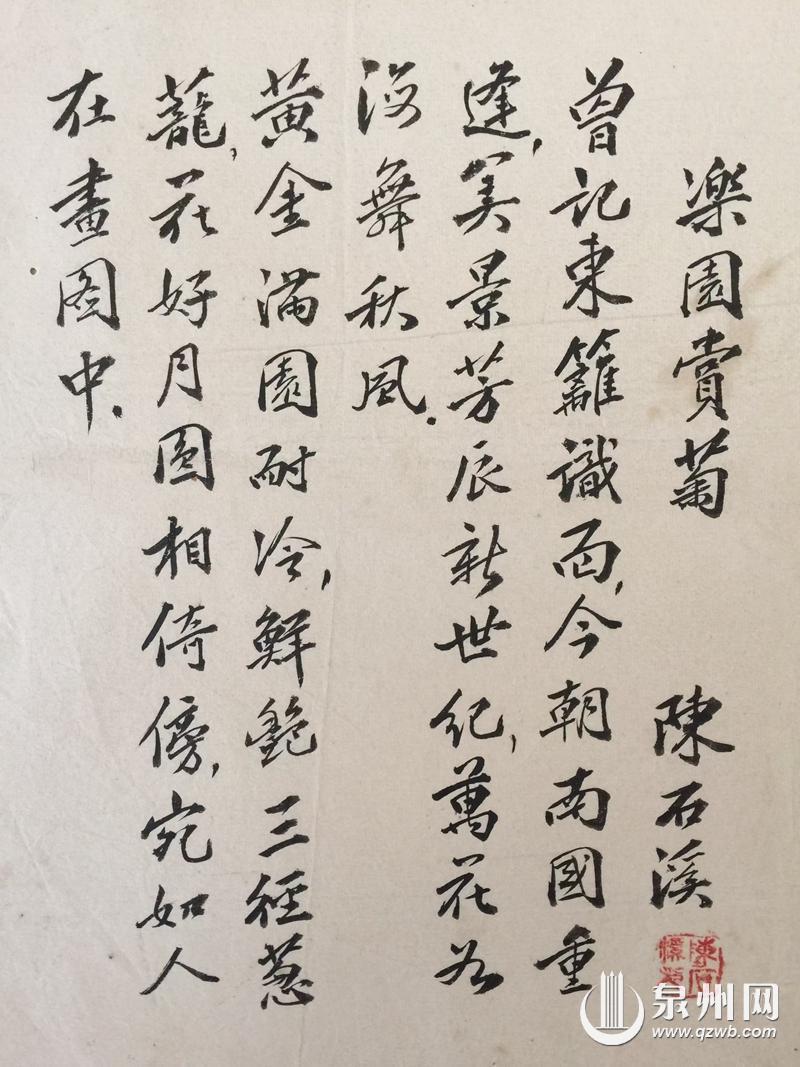 樂園賞菊 陳石溪
曾記東籬識面,今朝南國重
逢,美景芳辰新世紀,萬花
海舞秋風.
黃金滿園耐冷,鮮艷三徑蔥
蘢,花好月圓相倚傍,宛如人
在畫圖中.
泉州网
www.qzwb.com